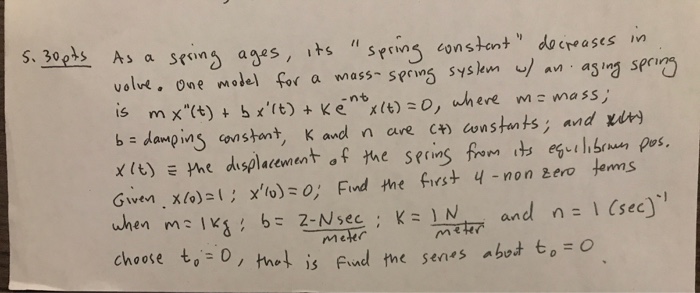 5. 30pts As a spring ages, its "spring constant" decreases in
volve. One model for a mass-spring system w/ an aging spring
is m x"(t) + b x'(t) + K e^-nt x(t) = 0, where m = mass;
b = damping constant, K and n are (+) constants; and
x(t) ≡ the displacement of the spring from its equilibrium pos.
Given x(0)=1; x'(0)=0; Find the first 4-non zero terms
when m = 1kg; b = 2-N sec/meter; K = 1 N/meter and n = 1 (sec)^-1
choose t₀ = 0, that is find the series about t₀ = 0.